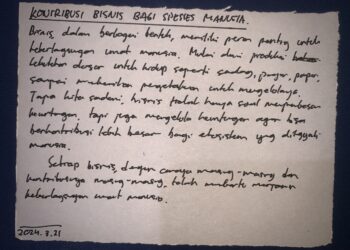 KONTRIBUSI BISNIS BAGI SPESIES MANUSIA.
Bisnis, dalam berbagai bentuk, memiliki peran penting untuk
keberlangsungan umat manusia. Mulai dari produksi
kebutuhan dasar untuk hidup seperti sandang, pangan, papan,
sampai memberikan pengetahuan untuk mengelolanya.
Tanpa kita sadari, bisnis tidak hanya soal
keuntungan, tapi juga mengelola keuntungan agar bisa
berkontribusi lebih besar bagi ekosistem yang ditinggali
manusia.
Setiap bisnis, dengan caranya masing-masing dan
kontribusinya masing-masing, telah membantu
keberlangsungan umat manusia.
2024.8.21